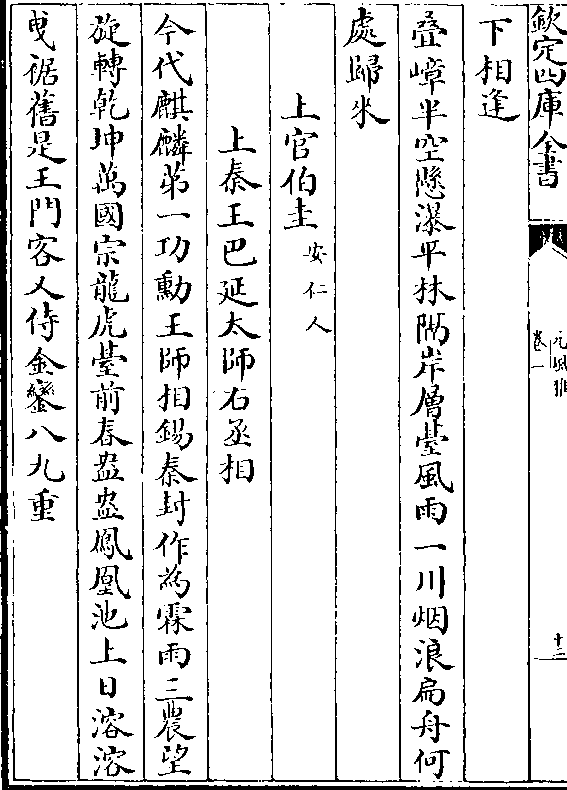 欽定四庫全書
元風雅
卷一
十二
下相逢
疊嶂半空懸瀑平林隔岸層臺風雨一川烟浪扁舟何
處歸來
上官伯圭安仁人
上秦王巴延太師右丞相
今代麒麟第一功勳王師相錫秦封作為霖雨三農望
旋轉乾坤萬國宗龍虎臺前春盎盎鳳凰池上日溶溶
曵裾舊是王門客人侍金鑾八九重